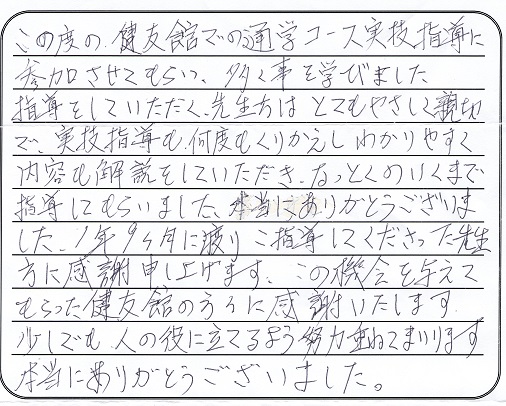 この度の、健友館での通学コース実技指導に
参加させてもらい、多く事を学びました
指導をしていただく、先生方は とてもやさしく親切
で、実技指導も、何度もくりかえし わかりやすく
内容も解説をしていただき、なっとくのいくまで
指導してもらいました、本当にありがとうございま
した、1年9ヶ月に渡り ご指導してくださった先生
方に感謝申し上げます、この機会を与えて
もらった健友館の方々に感謝いたします
少しでも、人の役に立てるよう 努力重ねてまいります
本当にありがとうございました。